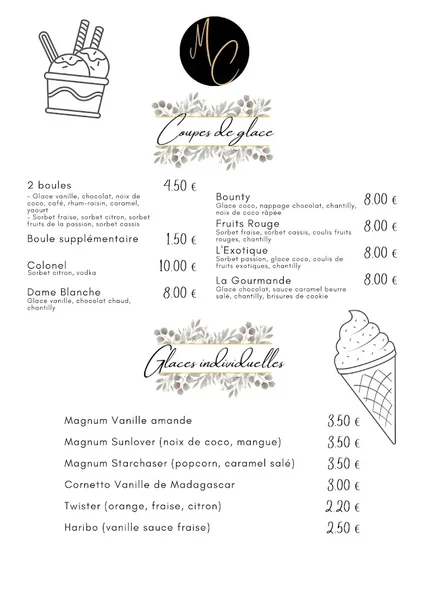 MC
Coupes de glace
2 boules 4.50 €
- Glace vanille, chocolat, noix de
coco, café, rhum-raisin, caramel,
yaourt
- Sorbet fraise, sorbet citron, sorbet
fruits de la passion, sorbet cassis
Boule supplémentaire 1.50 €
Colonel 10.00 €
Sorbet citron, vodka
Dame Blanche 8.00 €
Glace vanille, chocolat chaud,
chantilly
Bounty 8.00 €
Glace coco, nappage chocolat, chantilly,
noix de coco râpée
Fruits Rouge 8.00 €
Sorbet fraise, sorbet cassis, coulis fruits
rouges, chantilly
L'Exotique 8.00 €
Sorbet passion, glace coco, coulis de
fruits exotiques, chantilly
La Gourmande 8.00 €
Glace chocolat, sauce caramel beurre
salé, chantilly, brisures de cookie
Glaces individuelles
Magnum Vanille amande 3.50 €
Magnum Sunlover (noix de coco, mangue) 3.50 €
Magnum Starchaser (popcorn, caramel salé) 3.50 €
Cornetto Vanille de Madagascar 3.00 €
Twister (orange, fraise, citron) 2.20 €
Haribo (vanille sauce fraise) 2.50 €